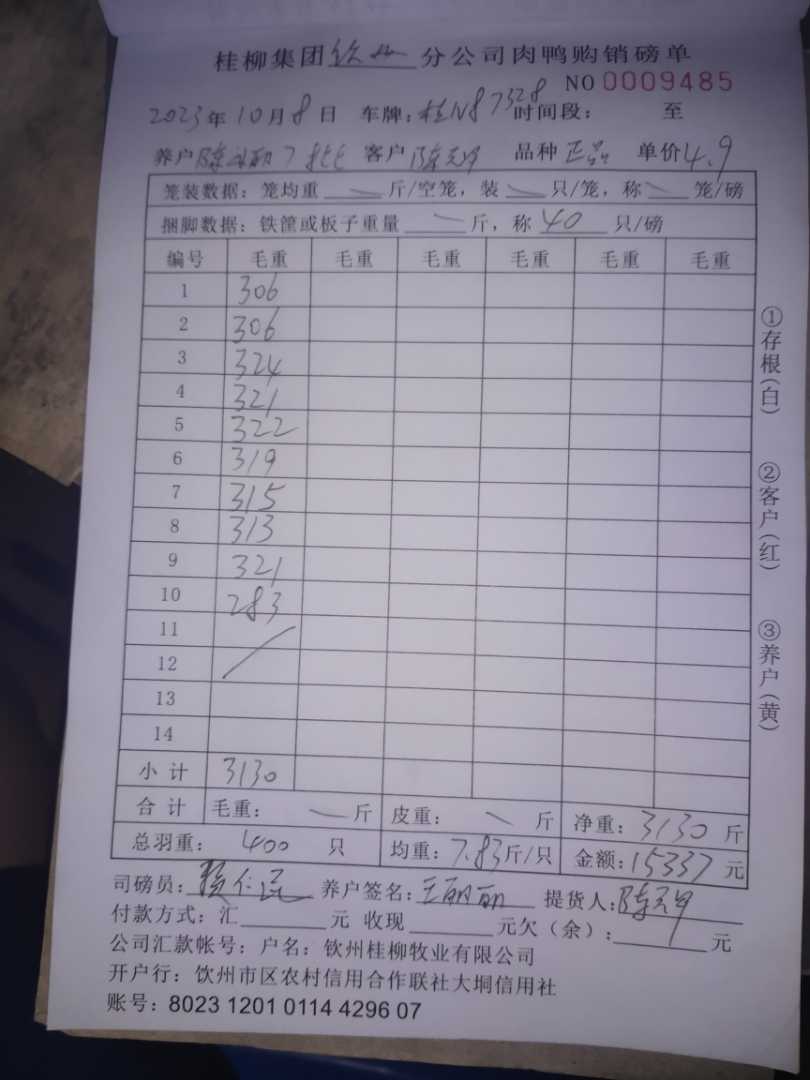 桂柳集团钦州分公司肉鸭购销磅单
NO 0009485
2023年10月8日 车牌：桂N87328 时间段： 至
养户陈 丽7批 客户陈 品种正品 单价4.9
笼装数据：笼均重 — 斤/空笼，装 — 只/笼，称 — 笼/磅
捆脚数据：铁筐或板子重量 — 斤，称 40 只/磅
编号 毛重 毛重 毛重 毛重 毛重 毛重
1 306
2 306
3 324
4 321
5 322
6 319
7 315
8 313
9 321
10 283
11
12
13
14
小计 3130
合计 毛重： — 斤 皮重： — 斤 净重：3130斤
总羽重： 400 只 均重：7.83斤/只 金额：15337元
司磅员： 养户签名：王丽丽 提货人：陈
付款方式：汇 元 收现 元欠（余）： 元
公司汇款帐号：户名：钦州桂柳牧业有限公司
开户行：饮州市区农村信用合作联社大垌信用社
账号：8023 1201 0114 4296 07
①存根（白）
②客户（红）
③养户（黄）